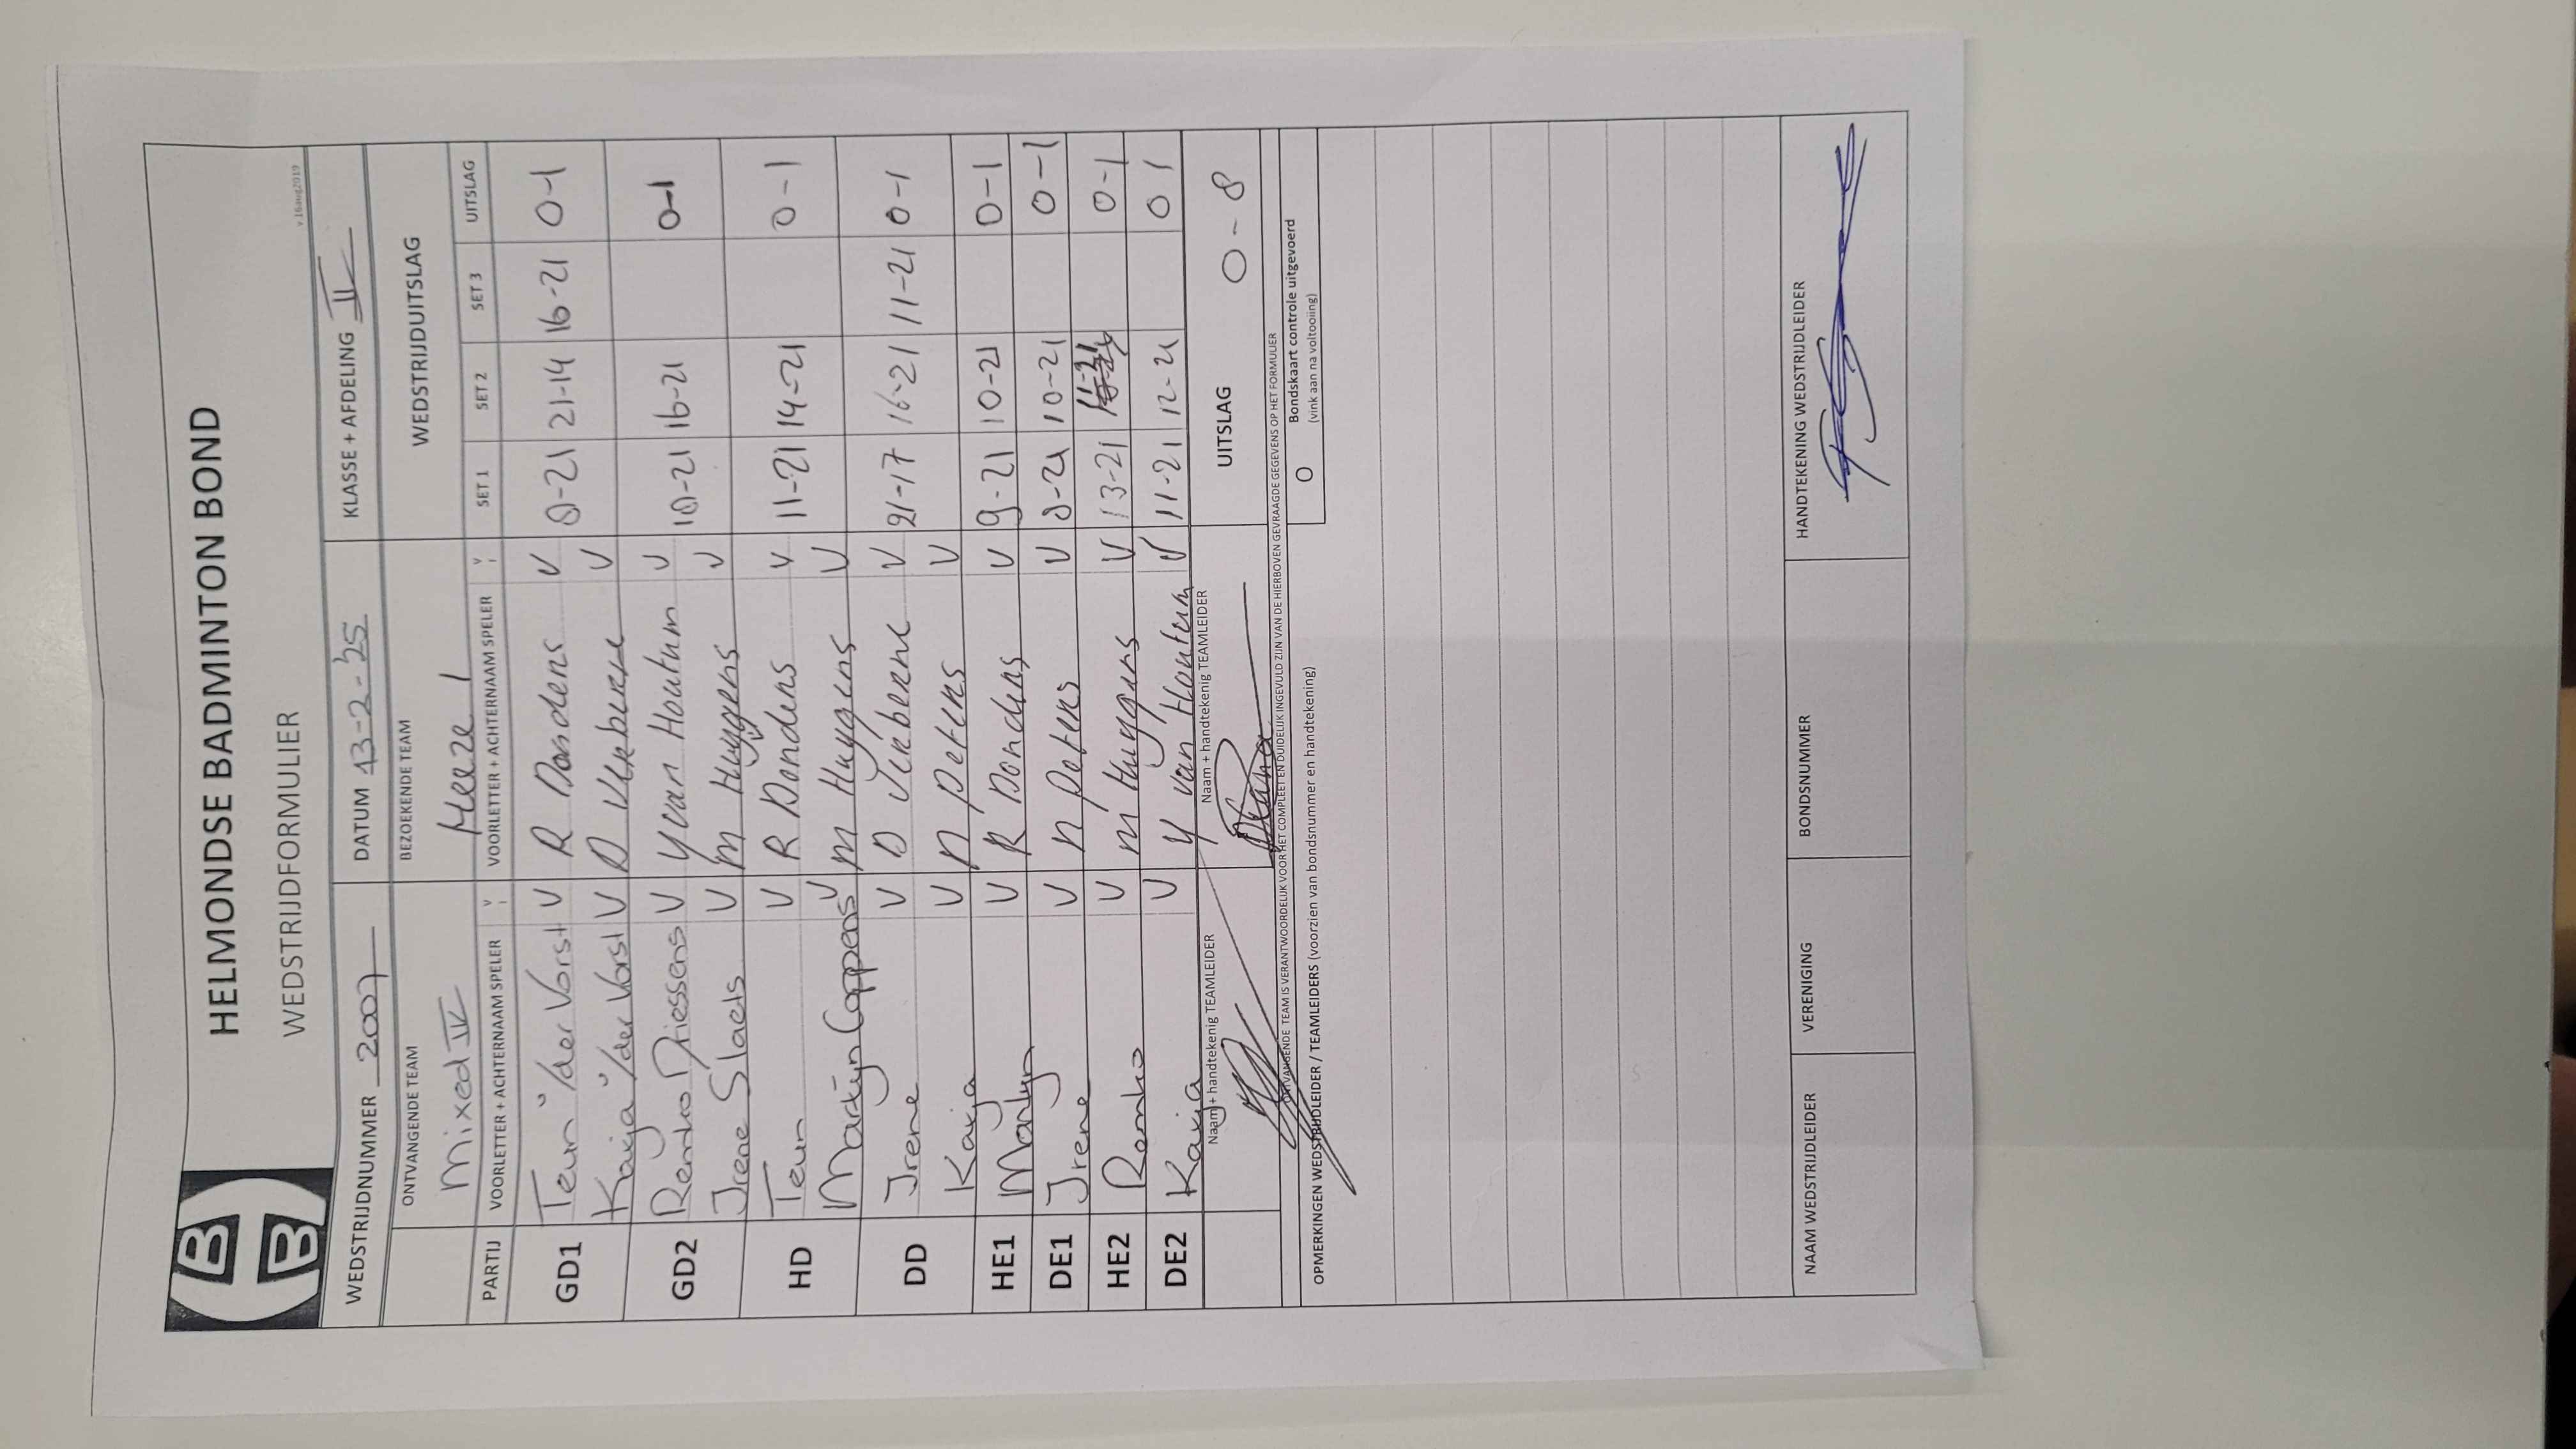 HELMONDSE BADMINTON BOND
WEDSTRIJDFORMULIER
v.16aug2019
WEDSTRIJDNUMMER 2007 DATUM 13-2-'25 KLASSE + AFDELING II
ONTVANGENDE TEAM BEZOEKENDE TEAM WEDSTRIJDUITSLAG
Mixed IV Heeze 1
PARTIJ VOORLETTER + ACHTERNAAM SPELER V VOORLETTER + ACHTERNAAM SPELER V SET 1 SET 2 SET 3 UITSLAG
GD1 Teun v/der Vorst V R Dondens V 8-21 21-14 16-21 0-1
Karja v/der Vorst V D Verberne V
GD2 Remko Driessens V Y van Houtum V 10-21 16-21 0-1
Irene Slaets V M Huygens V
HD Teun V R Dondens V 11-21 14-21 0-1
Martyn Coppens V M Huygens V
DD Irene V D Verberne V 21-17 16-21 11-21 0-1
Karja V N Peters V
HE1 Martyn V R Dondens V 9-21 10-21 0-1
DE1 Irene V N Peters V 8-21 10-21 0-1
HE2 Remko V M Huygens V 13-21 11-21 0-1
DE2 Karja V Y van Houtum V 11-21 12-21 0 1
Naam + handtekenig TEAMLEIDER Naam + handtekenig TEAMLEIDER UITSLAG 0-8
ONTVANGENDE TEAM IS VERANTWOORDELIJK VOOR HET COMPLEET EN DUIDELIJK INGEVULD ZIJN VAN DE HIERBOVEN GEVRAAGDE GEGEVENS OP HET FORMULIER
O Bondskaart controle uitgevoerd
(vink aan na voltooiing)
OPMERKINGEN WEDSTRIJDLEIDER / TEAMLEIDERS (voorzien van bondsnummer en handtekening)
NAAM WEDSTRIJDLEIDER VERENIGING BONDSNUMMER HANDTEKENING WEDSTRIJDLEIDER